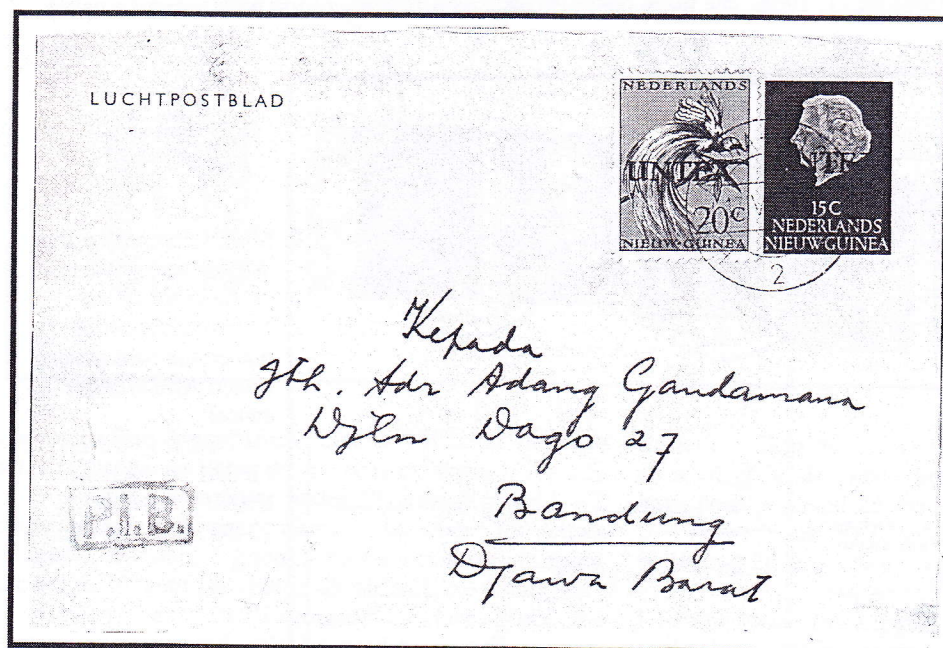 LUCHTPOSTBLAD
NEDERLANDS
UNTEA
20c
NIEUW-GUINEA
NTE
15C
NEDERLANDS
NIEUW-GUINEA
2
Kepada
Jth. Sdr Adang Gandamana
Djln Dago 27
Bandung
Djawa Barat
P.I.B.